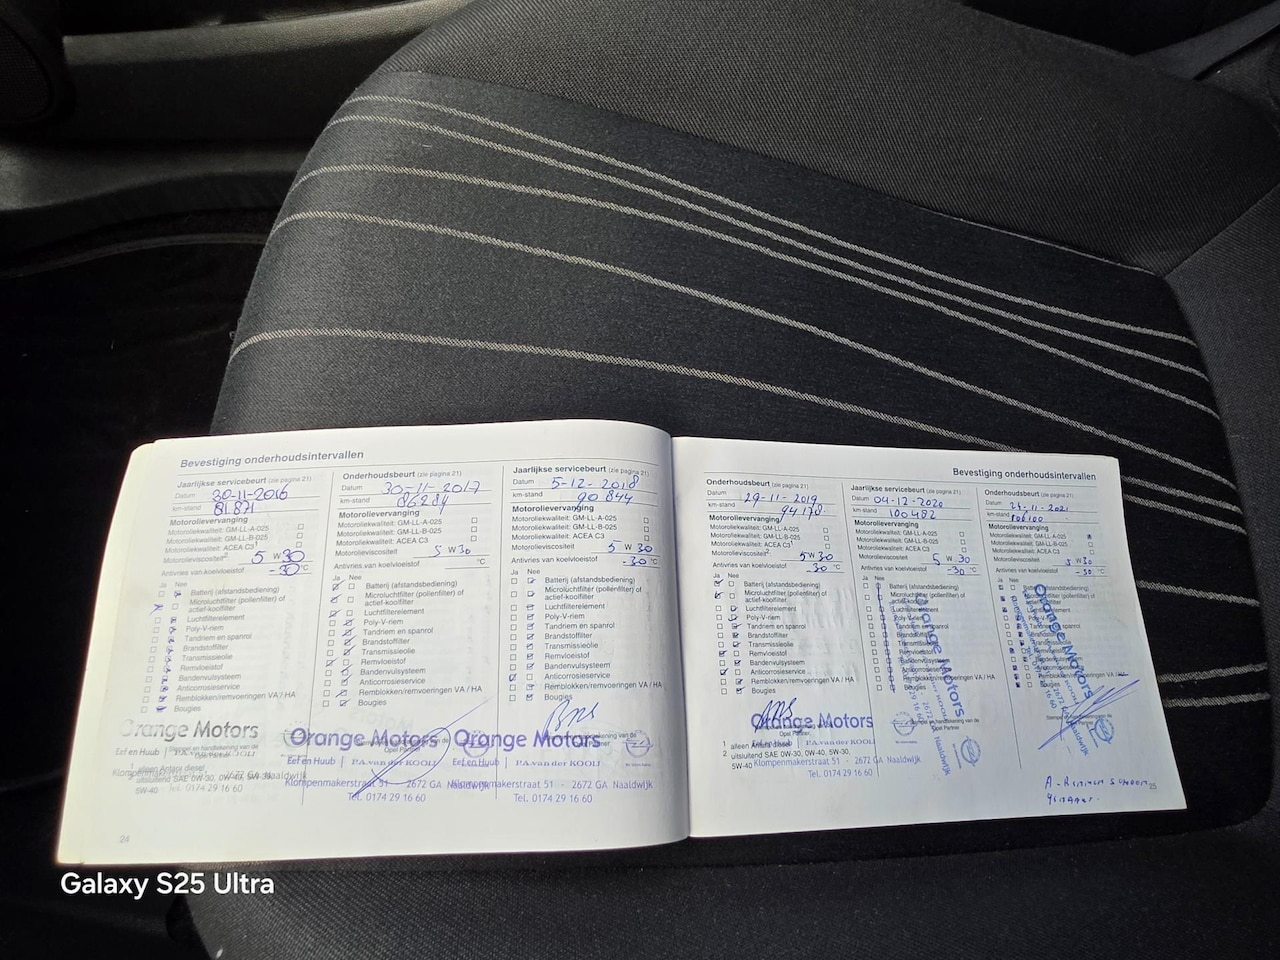 Bevestiging onderhoudsintervallen
Jaarlijkse servicebeurt (zie pagina 21)
Datum 30-11-2016
km-stand 81871
Motorolievervanging
Motoroliekwaliteit: GM-LL-A-025
Motoroliekwaliteit: GM-LL-B-025
Motoroliekwaliteit: ACEA C3¹
Motorolieviscositeit² 5 W 30
Antivries van koelvloeistof -30 °C
Ja Nee
Batterij (afstandsbediening)
Microluchtfilter (pollenfilter) of
actief-koolfilter
Luchtfilterelement
Poly-V-riem
Tandriem en spanrol
Brandstoffilter
Transmissieolie
Remvloeistof
Bandenvulsysteem
Anticorrosieservice
Remblokken/remvoeringen VA / HA
Bougies
Orange Motors
Eef en Huub | P.A. van der KOOIJ
Klompenmakerstraat 51 - 2672 GA Naaldwijk
Tel. 0174 29 16 60
1 alleen Antara diesel
2 uitsluitend SAE 0W-30, 0W-40, 5W-30,
5W-40
24
Onderhoudsbeurt (zie pagina 21)
Datum 30-11-2017
km-stand 86284
Motorolievervanging
Motoroliekwaliteit: GM-LL-A-025
Motoroliekwaliteit: GM-LL-B-025
Motoroliekwaliteit: ACEA C3
Motorolieviscositeit 5 W 30
Antivries van koelvloeistof °C
Ja Nee
Batterij (afstandsbediening)
Microluchtfilter (pollenfilter) of
actief-koolfilter
Luchtfilterelement
Poly-V-riem
Tandriem en spanrol
Brandstoffilter
Transmissieolie
Remvloeistof
Bandenvulsysteem
Anticorrosieservice
Remblokken/remvoeringen VA / HA
Bougies
Orange Motors
Eef en Huub | P.A. van der KOOIJ
Klompenmakerstraat 51 - 2672 GA Naaldwijk
Tel. 0174 29 16 60
Jaarlijkse servicebeurt (zie pagina 21)
Datum 5-12-2018
km-stand 90844
Motorolievervanging
Motoroliekwaliteit: GM-LL-A-025
Motoroliekwaliteit: GM-LL-B-025
Motoroliekwaliteit: ACEA C3
Motorolieviscositeit 5 W 30
Antivries van koelvloeistof -30 °C
Ja Nee
Batterij (afstandsbediening)
Microluchtfilter (pollenfilter) of
actief-koolfilter
Luchtfilterelement
Poly-V-riem
Tandriem en spanrol
Brandstoffilter
Transmissieolie
Remvloeistof
Bandenvulsysteem
Anticorrosieservice
Remblokken/remvoeringen VA / HA
Bougies
Orange Motors
Eef en Huub | P.A. van der KOOIJ
Klompenmakerstraat 51 - 2672 GA Naaldwijk
Tel. 0174 29 16 60
Bevestiging onderhoudsintervallen
Onderhoudsbeurt (zie pagina 21)
Datum 29-11-2019
km-stand 94178
Motorolievervanging
Motoroliekwaliteit: GM-LL-A-025
Motoroliekwaliteit: GM-LL-B-025
Motoroliekwaliteit: ACEA C3¹
Motorolieviscositeit² 5 W 30
Antivries van koelvloeistof -30 °C
Ja Nee
Batterij (afstandsbediening)
Microluchtfilter (pollenfilter) of
actief-koolfilter
Luchtfilterelement
Poly-V-riem
Tandriem en spanrol
Brandstoffilter
Transmissieolie
Remvloeistof
Bandenvulsysteem
Anticorrosieservice
Remblokken/remvoeringen VA / HA
Bougies
Orange Motors
Eef en Huub | P.A. van der KOOIJ
Klompenmakerstraat 51 - 2672 GA Naaldwijk
Tel. 0174 29 16 60
1 alleen Antara diesel
2 uitsluitend SAE 0W-30, 0W-40, 5W-30,
5W-40
Jaarlijkse servicebeurt (zie pagina 21)
Datum 04-12-2020
km-stand 100482
Motorolievervanging
Motoroliekwaliteit: GM-LL-A-025
Motoroliekwaliteit: GM-LL-B-025
Motoroliekwaliteit: ACEA C3
Motorolieviscositeit 5 W 30
Antivries van koelvloeistof -30 °C
Ja Nee
Orange Motors
Stempel en handtekening van de
Opel Partner
Onderhoudsbeurt (zie pagina 21)
Datum 24-11-2021
km-stand
Motorolievervanging
Motoroliekwaliteit: GM-LL-A-025
Motoroliekwaliteit: GM-LL-B-025
Motoroliekwaliteit: ACEA C3
Motorolieviscositeit 5 W 30
Antivries van koelvloeistof -30 °C
Ja Nee
Orange Motors
25
Galaxy S25 Ultra